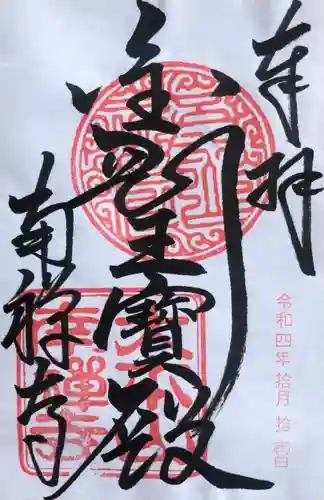 奉拝
令和四年 拾月 拾
金剛王寶殿
南禅寺